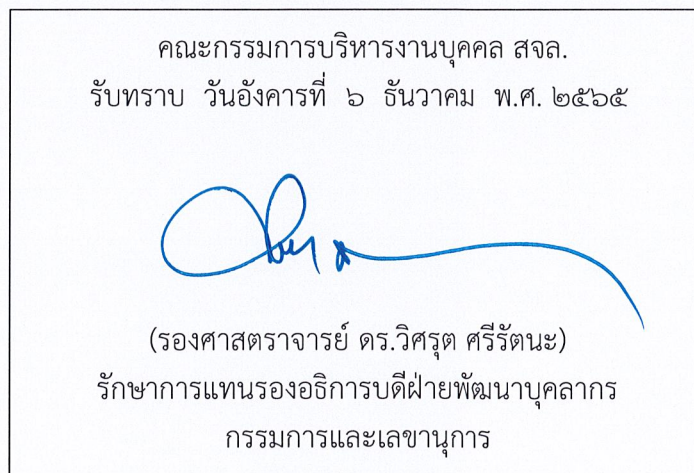 คณะกรรมการบริหารงานบุคคล สจล.
รับทราบ วันอังคารที่ ๖ ธันวาคม พ.ศ. ๒๕๖๕
(รองศาสตราจารย์ ดร.วิศรุต ศรีรัตนะ)
รักษาการแทนรองอธิการบดีฝ่ายพัฒนาบุคลากร
กรรมการและเลขานุการ